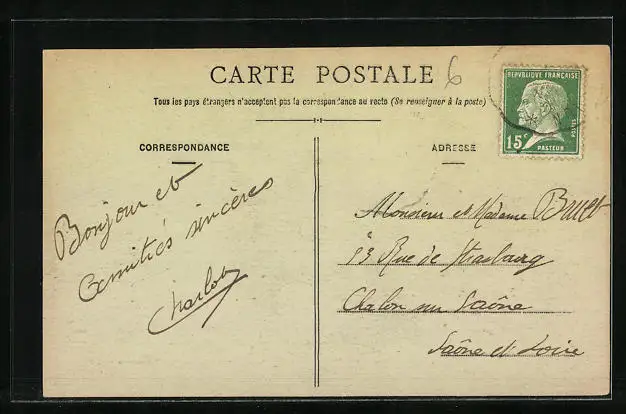 CARTE POSTALE
6
Tous les pays étrangers n'acceptent pas la correspondance au recto (Se renseigner à la poste)
REPUBLIQUE FRANÇAISE
15c
POSTES
PASTEUR
CORRESPONDANCE
Bonjour et
amitiés sincères
ADRESSE
Monsieur et Madame
Rue de Strasbourg
Chalon sur Saône
Saône et Loire